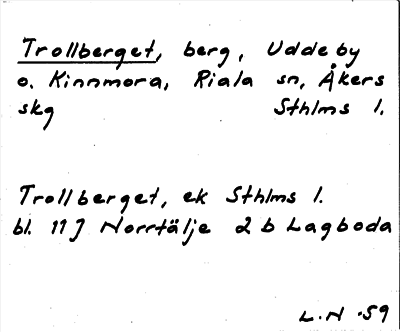 Trollberget, berg, Uddeby
o. Kinnmora, Riala sn, Åkers
skg Sthlms l.
Trollberget, ek Sthlms l.
bl. 11 J Norrtälje 2 b Lagboda
L.N -59